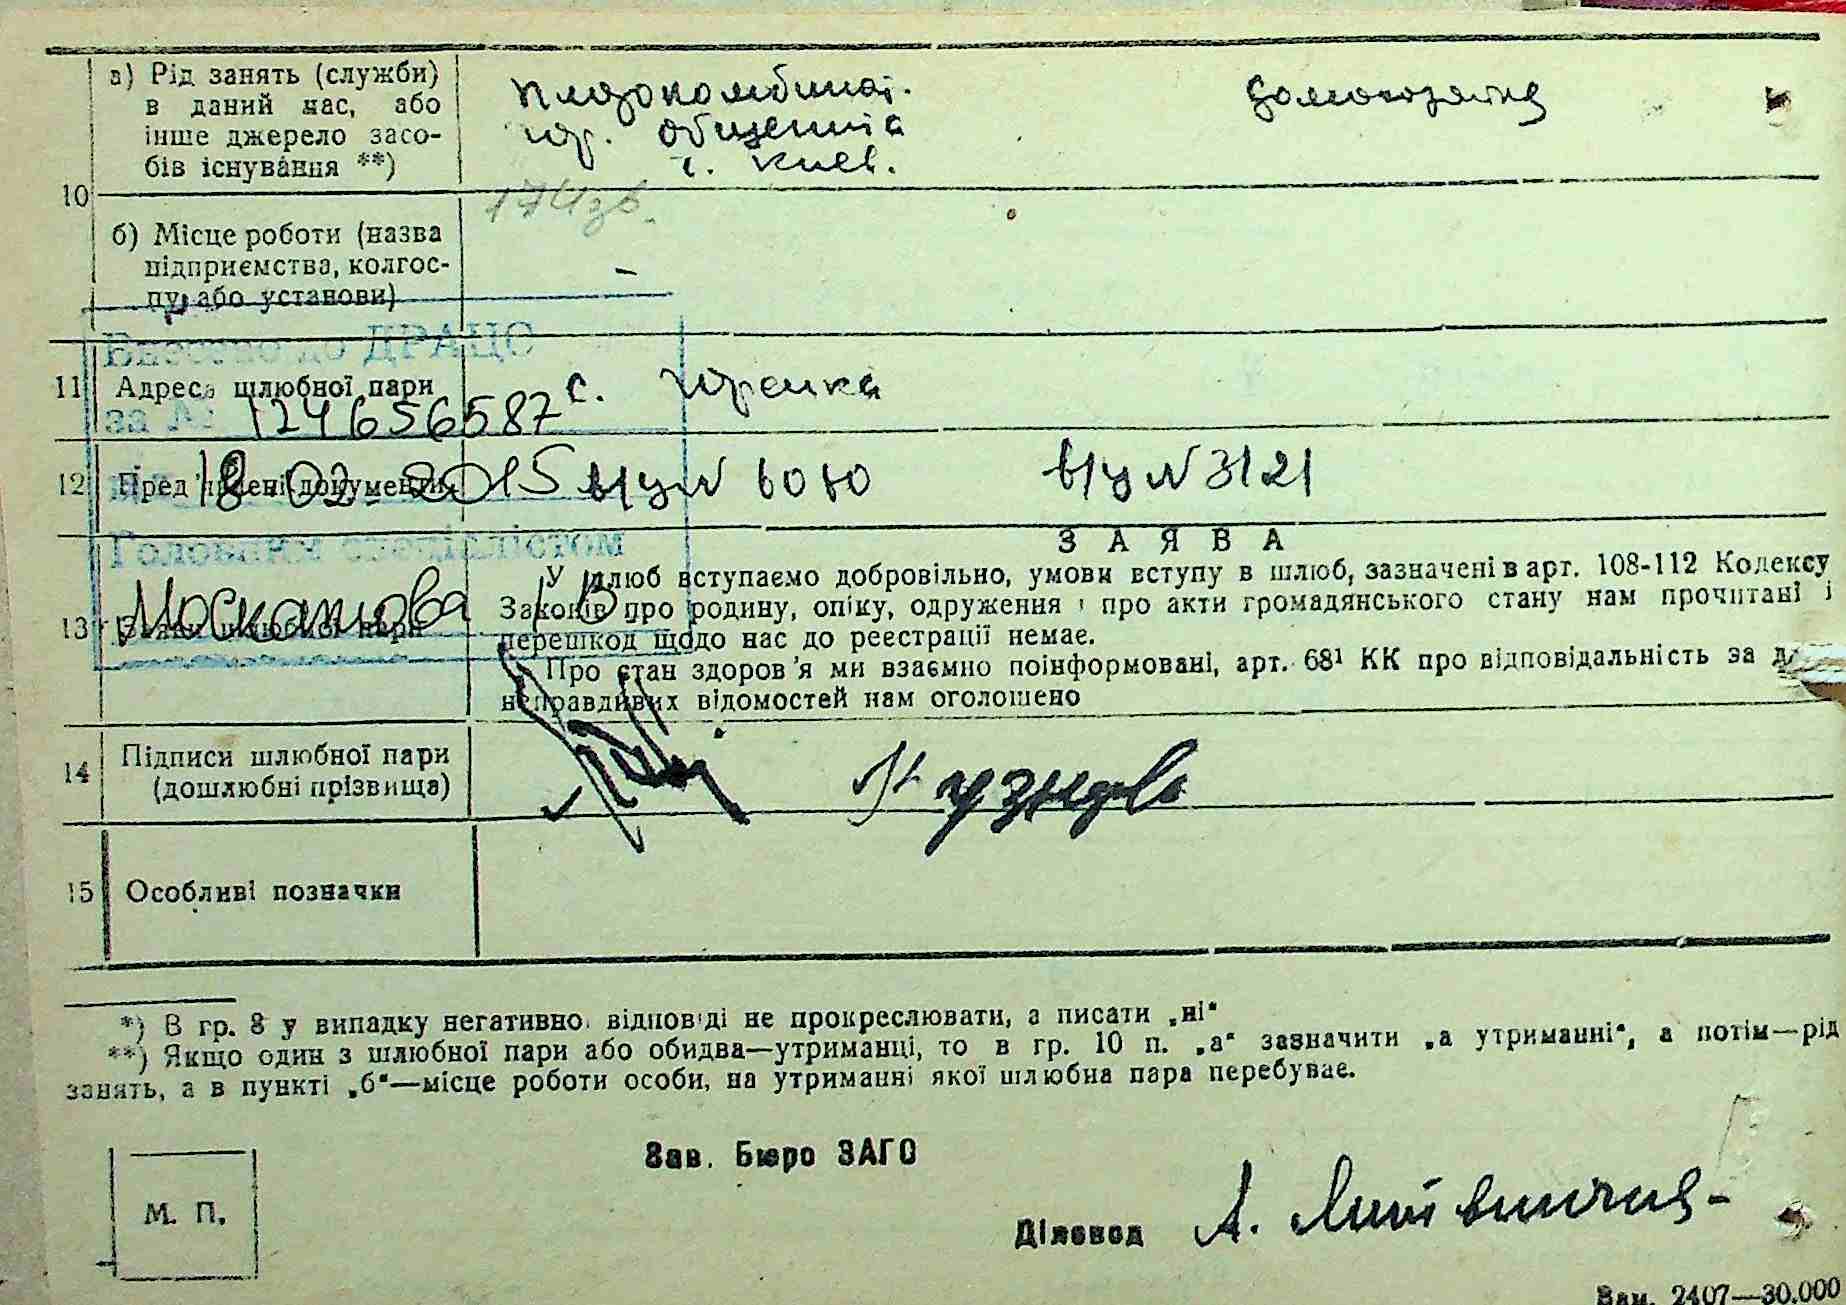 10
а) Рід занять (служби)
в даний час, або
інше джерело засо-
бів існування **)
г. Киев.
домохозяйка
174зв.
б) Місце роботи (назва
підприємства, колгос-
пу, або установи)
Внесено до ДРАЦС
11 Адреса шлюбної пари
с. Юренка
за № 124656587
12 Пред'явлені документи
18.02.2015
в/у № 6060
в/у № 3121
Головним спеціалістом
Москальова І В
ЗАЯВА
13 Заява шлюбної пари
У шлюб вступаємо добровільно, умови вступу в шлюб, зазначені в арт. 108-112 Кодексу
Законів про родину, опіку, одруження і про акти громадянського стану нам прочитані і
перешкод щодо нас до реєстрації немає.
Про стан здоров'я ми взаємно поінформовані, арт. 68¹ КК про відповідальність за
неправдивих відомостей нам оголошено
14 Підписи шлюбної пари
(дошлюбні прізвища)
15 Особливі позначки
*) В гр. 8 у випадку негативної відповіді не прокреслювати, а писати „ні“
**) Якщо один з шлюбної пари або обидва—утриманці, то в гр. 10 п. „а“ зазначити „а утриманні“, а потім—рід
занять, а в пункті „б“—місце роботи особи, на утриманні якої шлюбна пара перебуває.
Зав. Бюро ЗАГС
М. П.
Діловод
Зам. 2407—30.000